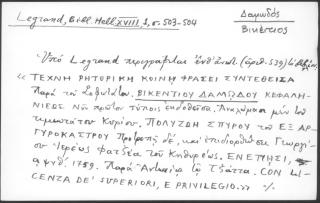 Legrand, Bibl. Hell. XVIII, 1, σ. 503-504
Δαμωδὸς
Βικέντιος
Ὑπὸ Legrand περιγράφεται ἐνθ' ἀνωτ. (ἀριθ. 539)
« ΤΕΧΝΗ ΡΗΤΟΡΙΚΗ ΚΟΙΝΗ ΦΡΑΣΕΙ ΣΥΝΤΕΘΕΙΣΑ
Παρὰ τοῦ Σοφωτάτου ΒΙΚΕΝΤΙΟΥ ΔΑΜΩΔΟΥ ΚΕΦΑΛΗ-
ΝΙΕΟΣ Νῦν πρῶτον τύποις ἐκδοθεῖσα. Ἀναλώμασι μὲν τοῦ
τιμιωτάτου Κυρίου. ΠΟΛΥΖΩΗ ΣΠΥΡΟΥ τοῦ ΕΞ ΑΡ-
ΓΥΡΟΚΑΣΤΡΟΥ Προτροπῇ δὲ, καὶ ἐπιδιορθώσει Γεωργί-
ου Ἱερέως Φατζέα τοῦ Κυθηρέως. ΕΝΕΤΙΗΣΙ,
αψνθ. 1759. Παρὰ Ἀντωνίῳ τῷ Τζάττα. CON LI-
CENZA DE' SUPERIORI, E PRIVILEGIO. »